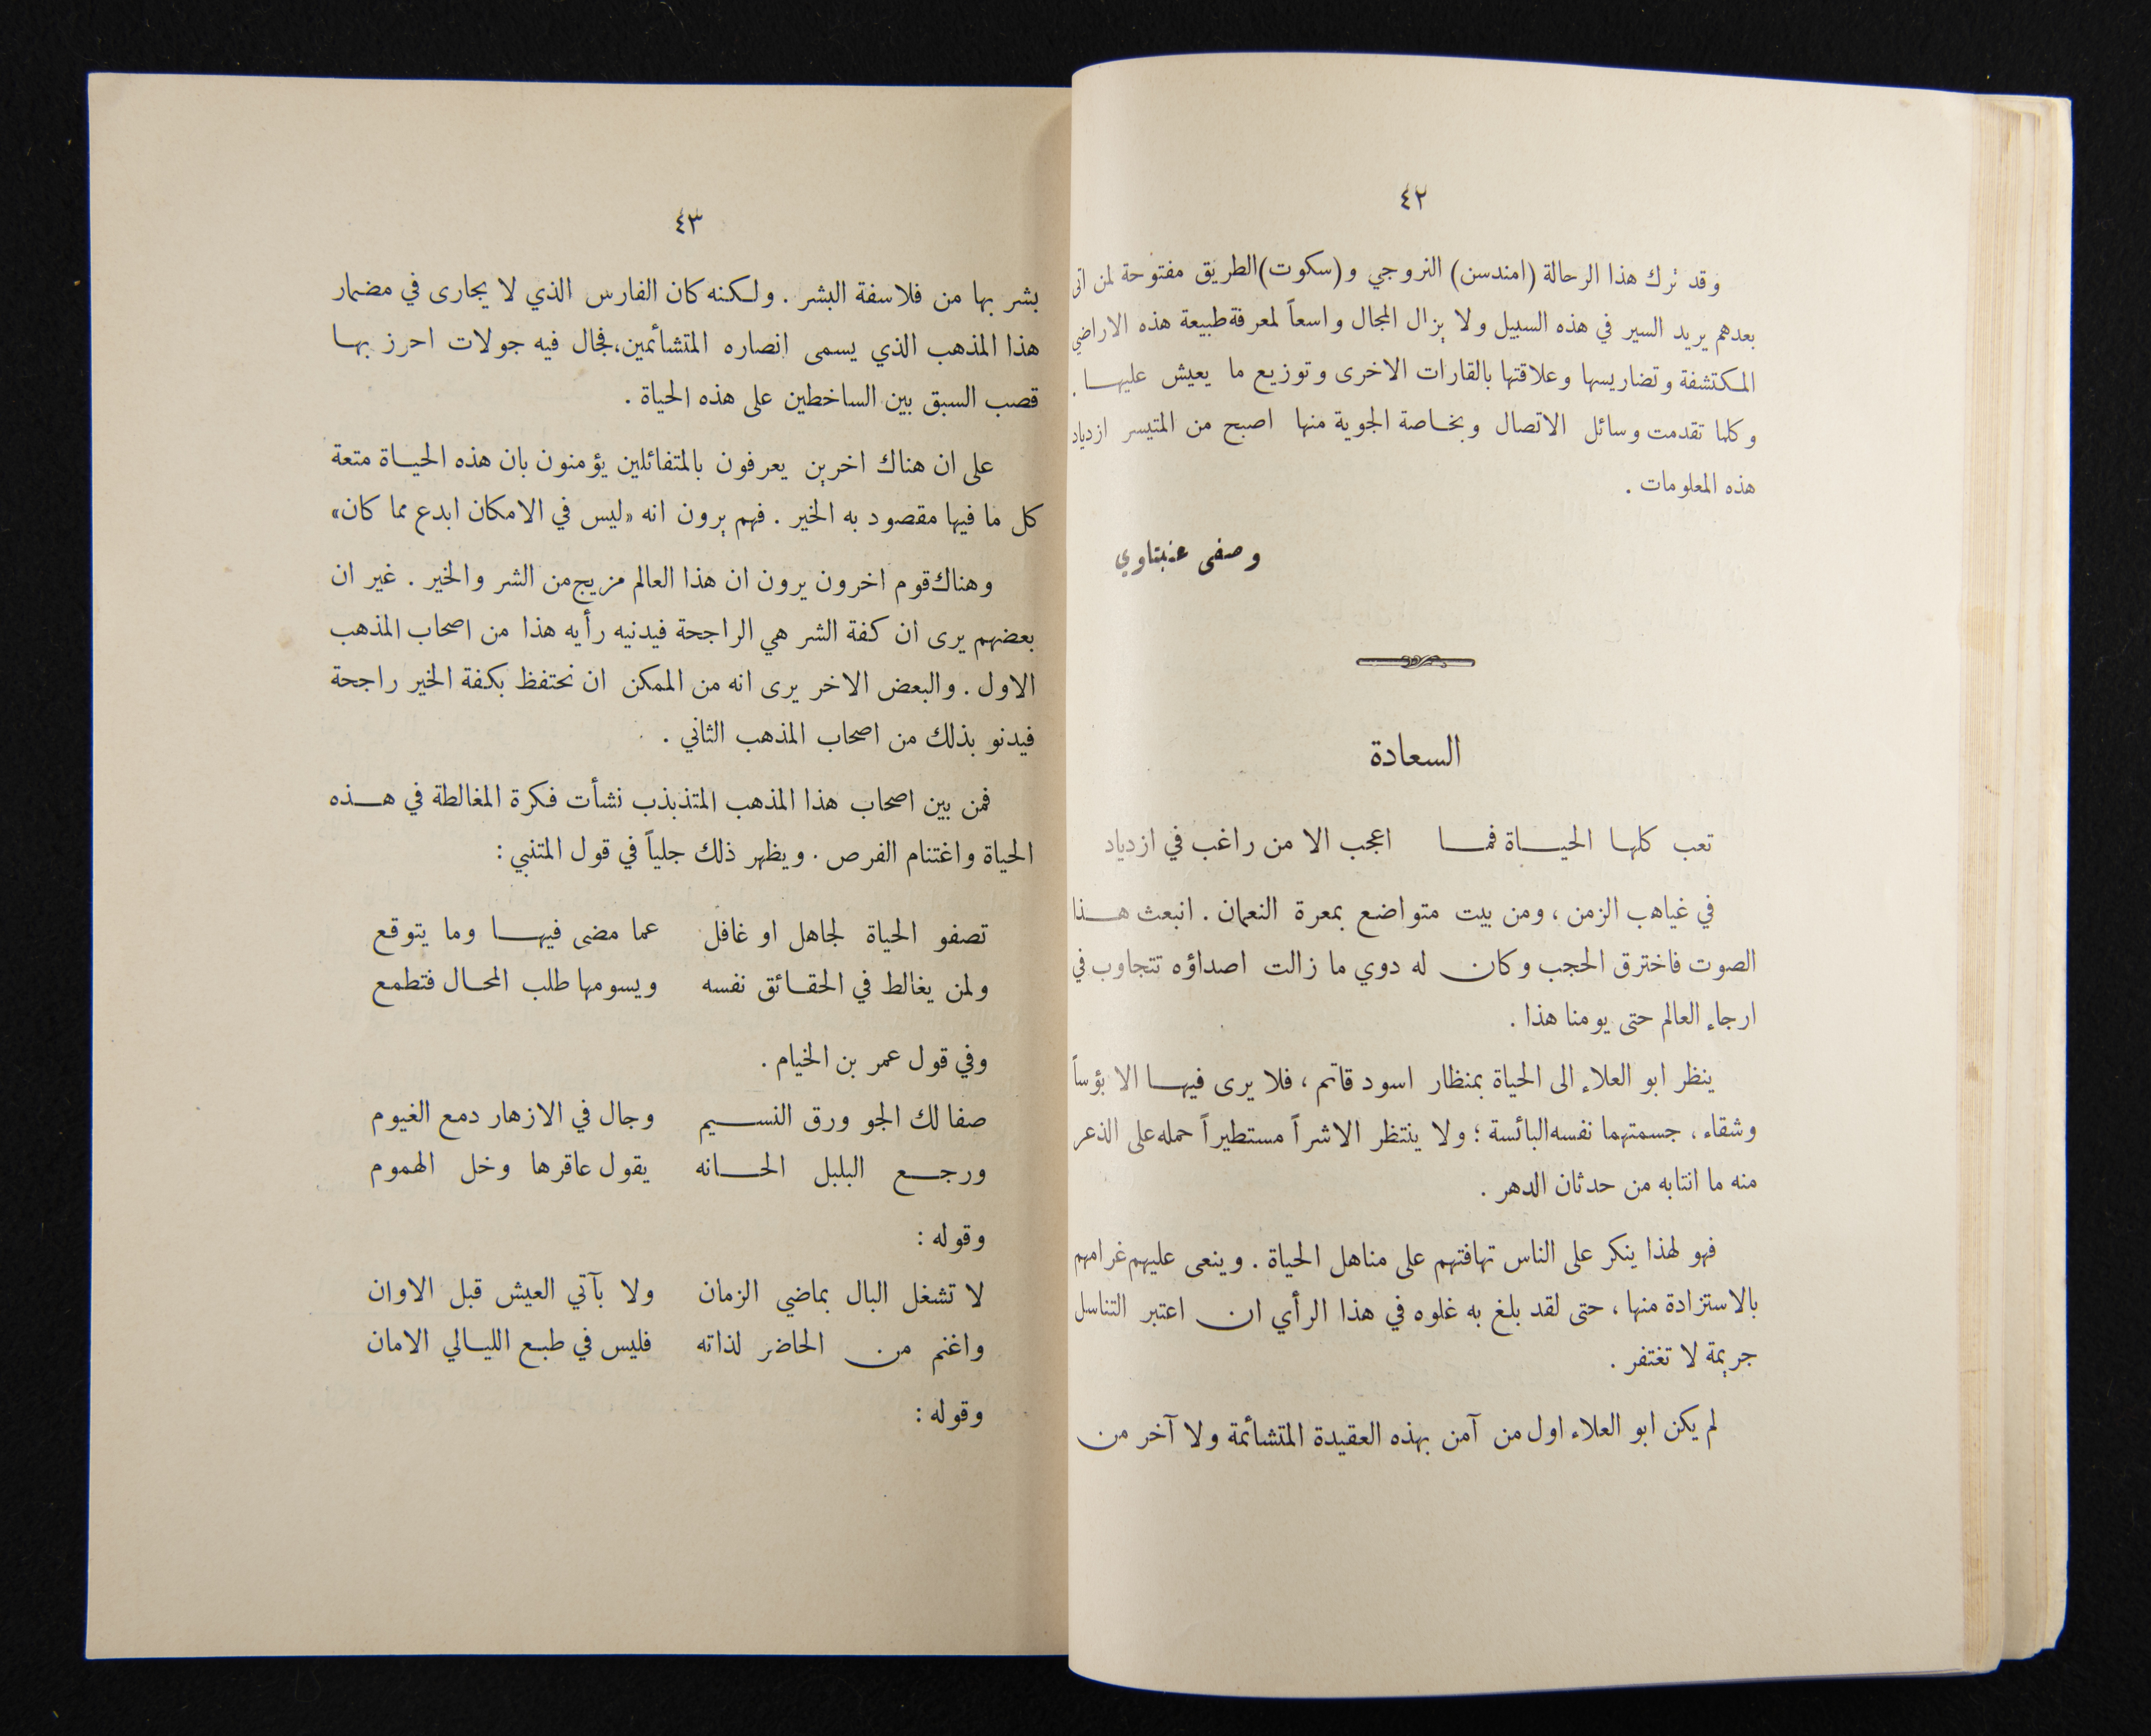 ٤٢
وقد ترك هذا الرحالة (امندسن) النروجي و(سكوت) الطريق مفتوحة لمن اتى
بعدهم يريد السير في هذه السبيل ولا يزال المجال واسعاً لمعرفة طبيعة هذه الاراضي
المكتشفة وتضاريسها وعلاقتها بالقارات الاخرى وتوزيع ما يعيش عليها .
وكلما تقدمت وسائل الاتصال وبخاصة الجوية منها اصبح من المتيسر ازدياد
هذه المعلومات .
وصفى عنبتاوي
السعادة
تعب كلها الحياة فما اعجب الا من راغب في ازدياد
في غياهب الزمن ، ومن بيت متواضع بمعرة النعمان . انبعث هذا
الصوت فاخترق الحجب وكان له دوي ما زالت اصداؤه تتجاوب في
ارجاء العالم حتى يومنا هذا .
ينظر ابو العلاء الى الحياة بمنظار اسود قاتم ، فلا يرى فيها الا بؤساً
وشقاء ، جسمتهما نفسه البائسة ؛ ولا ينتظر الا شراً مستطيراً حمله على الذعر
منه ما انتابه من حدثان الدهر .
فهو لهذا ينكر على الناس تهافتهم على مناهل الحياة . وينعى عليهم غرامهم
بالاستزادة منها ، حتى لقد بلغ به غلوه في هذا الرأي ان اعتبر التناسل
جريمة لا تغتفر .
لم يكن ابو العلاء اول من آمن بهذه العقيدة المتشائمة ولا آخر من
٤٣
بشر بها من فلاسفة البشر . ولكنه كان الفارس الذي لا يجارى في مضمار
هذا المذهب الذي يسمى انصاره المتشائمين، فجال فيه جولات احرز بها
قصب السبق بين الساخطين على هذه الحياة .
على ان هناك اخرين يعرفون بالمتفائلين يؤمنون بان هذه الحياة متعة
كل ما فيها مقصود به الخير . فهم يرون انه «ليس في الامكان ابدع مما كان»
وهناك قوم اخرون يرون ان هذا العالم مزيج من الشر والخير . غير ان
بعضهم يرى ان كفة الشر هي الراجحة فيدنيه رأيه هذا من اصحاب المذهب
الاول . والبعض الاخر يرى انه من الممكن ان نحتفظ بكفة الخير راجحة
فيدنو بذلك من اصحاب المذهب الثاني .
فمن بين اصحاب هذا المذهب المتذبذب نشأت فكرة المغالطة في هذه
الحياة واغتنام الفرص . ويظهر ذلك جلياً في قول المتنبي :
تصفو الحياة لجاهل او غافل عما مضى فيها وما يتوقع
ولمن يغالط في الحقائق نفسه ويسومها طلب المحال فتطمع
وفي قول عمر بن الخيام .
صفا لك الجو ورق النسيم وجال في الازهار دمع الغيوم
ورجع البلبل الحانه يقول عاقرها وخل الهموم
وقوله :
لا تشغل البال بماضي الزمان ولا بآتي العيش قبل الاوان
واغنم من الحاضر لذاته فليس في طبع الليالي الامان
وقوله :